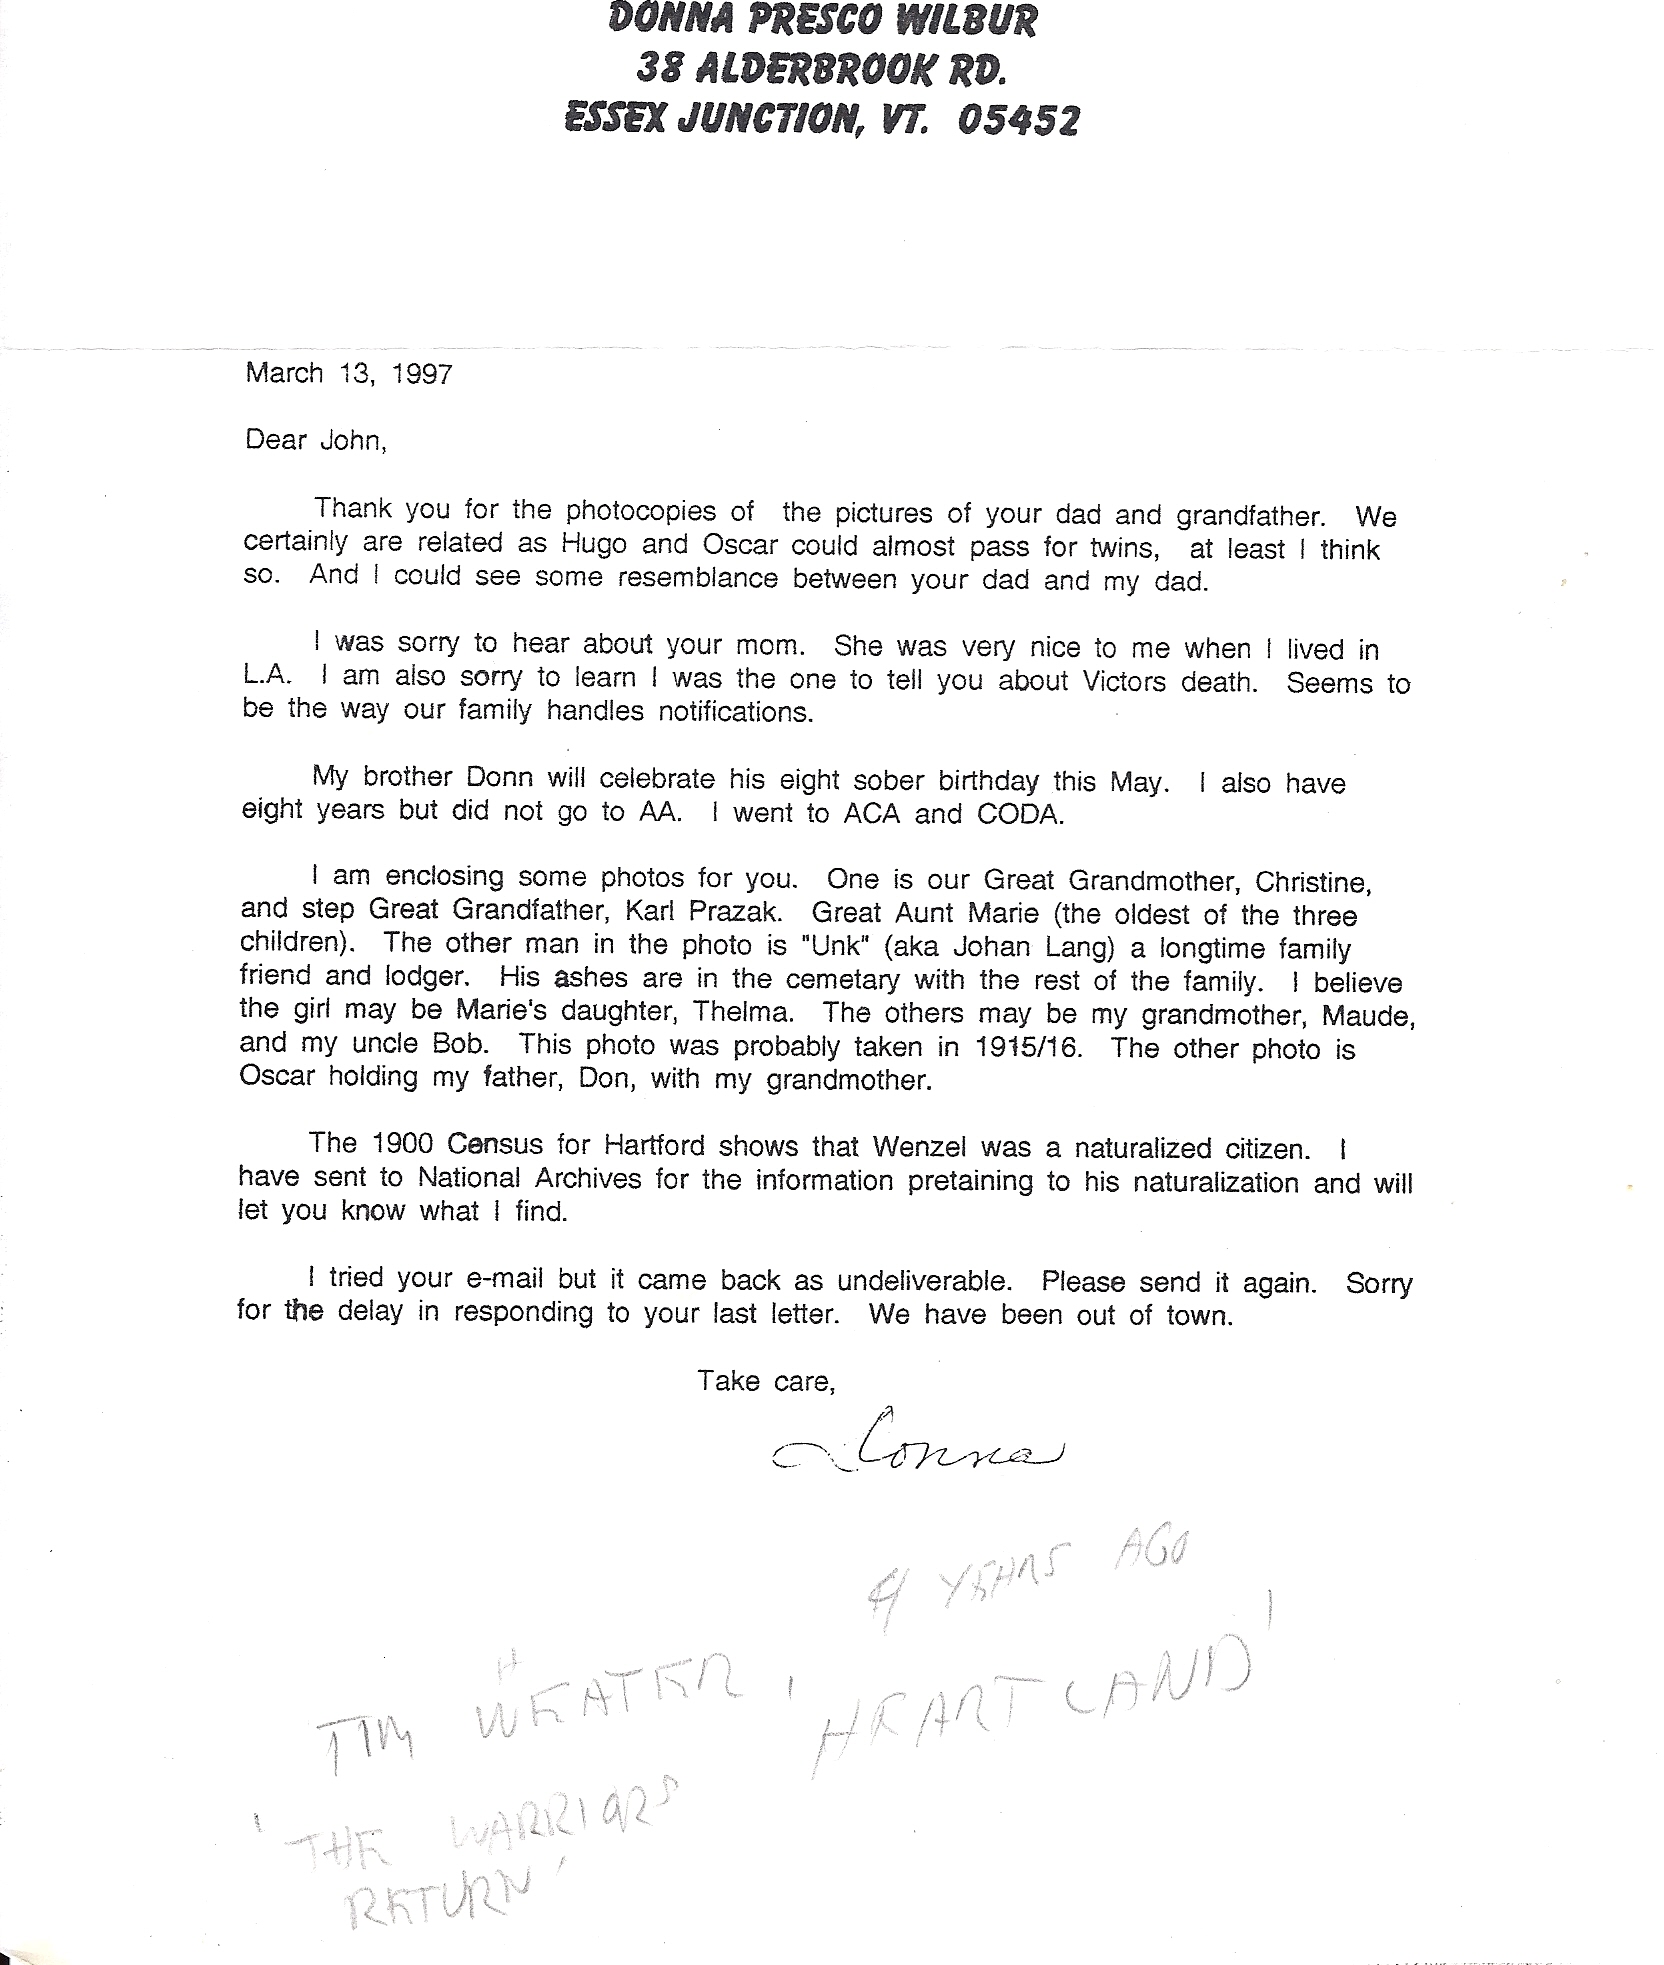 DONNA PRESCO WILBUR
38 ALDERBROOK RD.
ESSEX JUNCTION, VT. 05452
March 13, 1997
Dear John,
Thank you for the photocopies of the pictures of your dad and grandfather. We
certainly are related as Hugo and Oscar could almost pass for twins, at least I think
so. And I could see some resemblance between your dad and my dad.
I was sorry to hear about your mom. She was very nice to me when I lived in
L.A. I am also sorry to learn I was the one to tell you about Victors death. Seems to
be the way our family handles notifications.
My brother Donn will celebrate his eight sober birthday this May. I also have
eight years but did not go to AA. I went to ACA and CODA.
I am enclosing some photos for you. One is our Great Grandmother, Christine,
and step Great Grandfather, Karl Prazak. Great Aunt Marie (the oldest of the three
children). The other man in the photo is "Unk" (aka Johan Lang) a longtime family
friend and lodger. His ashes are in the cemetary with the rest of the family. I believe
the girl may be Marie's daughter, Thelma. The others may be my grandmother, Maude,
and my uncle Bob. This photo was probably taken in 1915/16. The other photo is
Oscar holding my father, Don, with my grandmother.
The 1900 Census for Hartford shows that Wenzel was a naturalized citizen. I
have sent to National Archives for the information pretaining to his naturalization and will
let you know what I find.
I tried your e-mail but it came back as undeliverable. Please send it again. Sorry
for the delay in responding to your last letter. We have been out of town.
Take care,
Donna
YEARS AGO
TIM WEATHER, 'HEARTLAND'
'THE WARRIORS
RETURN'